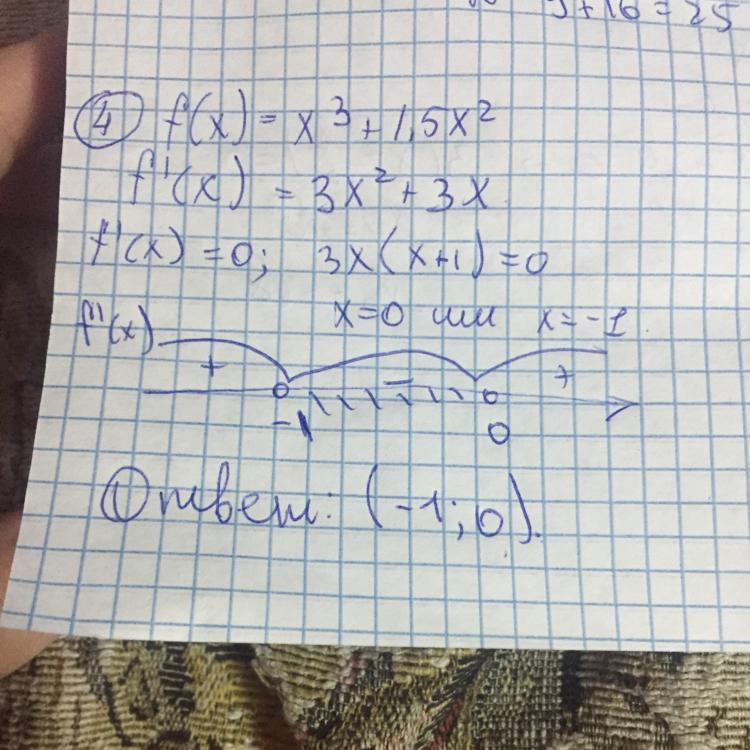 9+16=25
④ f(x) = x³ + 1,5x²
f'(x) = 3x² + 3x
f'(x) = 0; 3x(x+1) = 0
x=0 или x=-1
f'(x) + - +
-1 0
Ответ: (-1; 0).